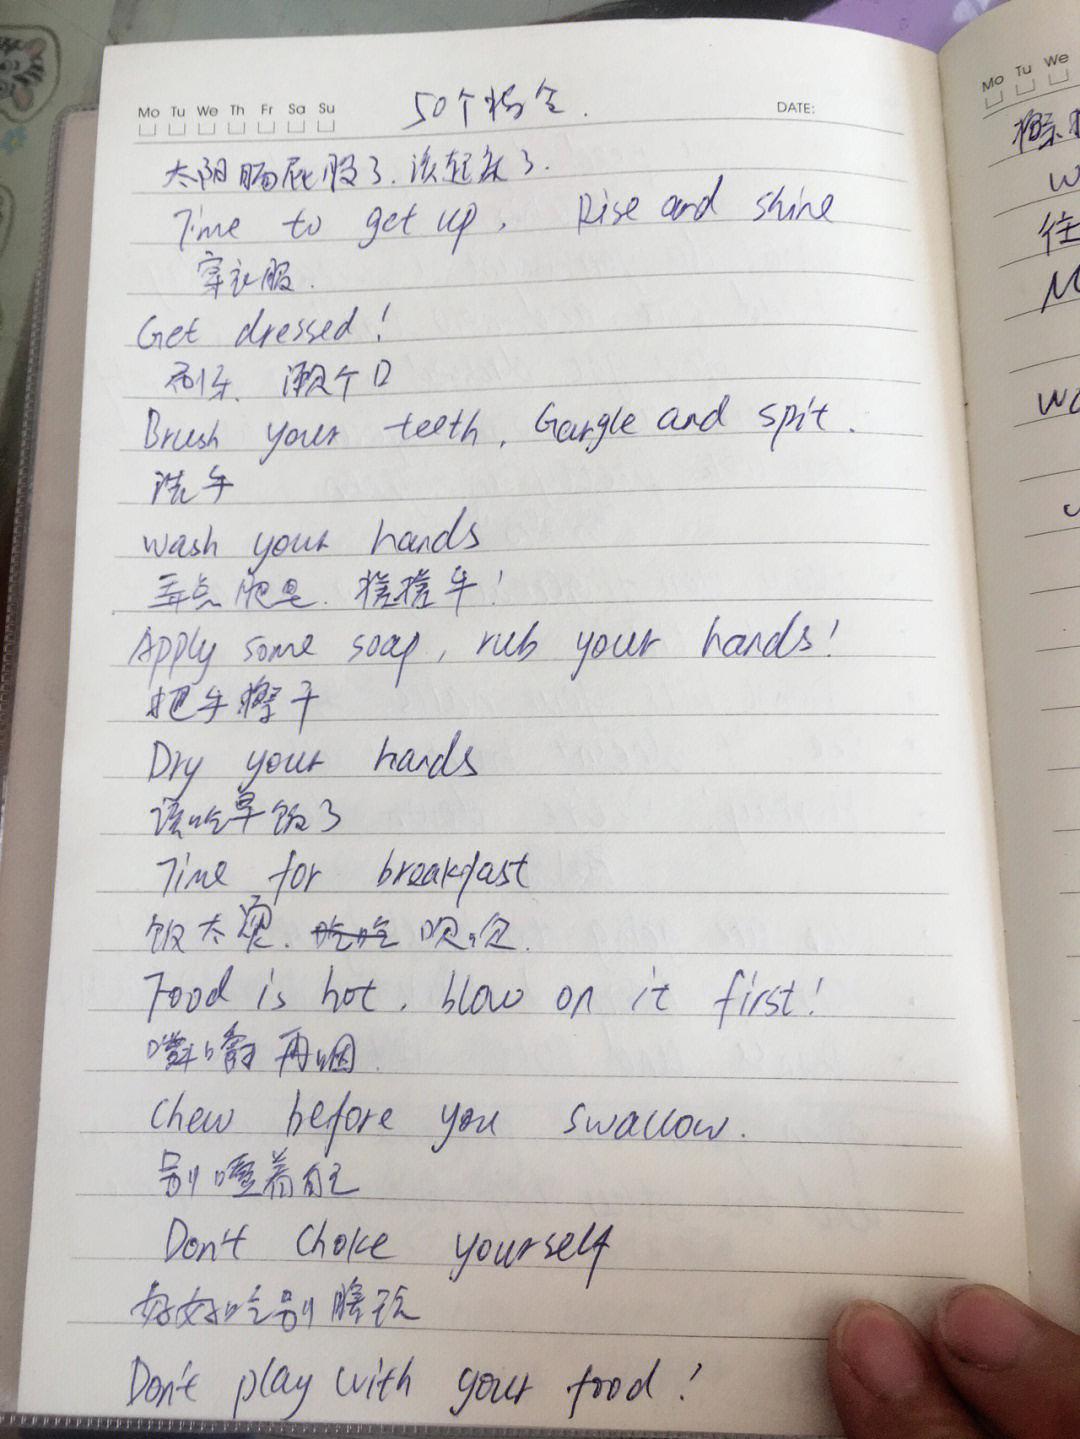 Mo Tu We Th Fr Sa Su
50个指令.
DATE:
太阳晒屁股了.该起床了.
Time to get up, Rise and shine
穿衣服.
Get dressed!
刷牙. 漱个口
Brush your teeth, Gargle and spit.
洗手
wash your hands
弄点肥皂. 搓搓手!
Apply some soap, rub your hands!
把手擦干
Dry your hands
该吃早饭了
Time for breakfast
饭太烫. 吹吹.
Food is hot, blow on it first!
嚼嚼再咽.
Chew before you swallow.
别噎着自己
Don't choke yourself
好好吃别瞎玩
Don't play with your food!
Mo Tu We
擦
W
往
M